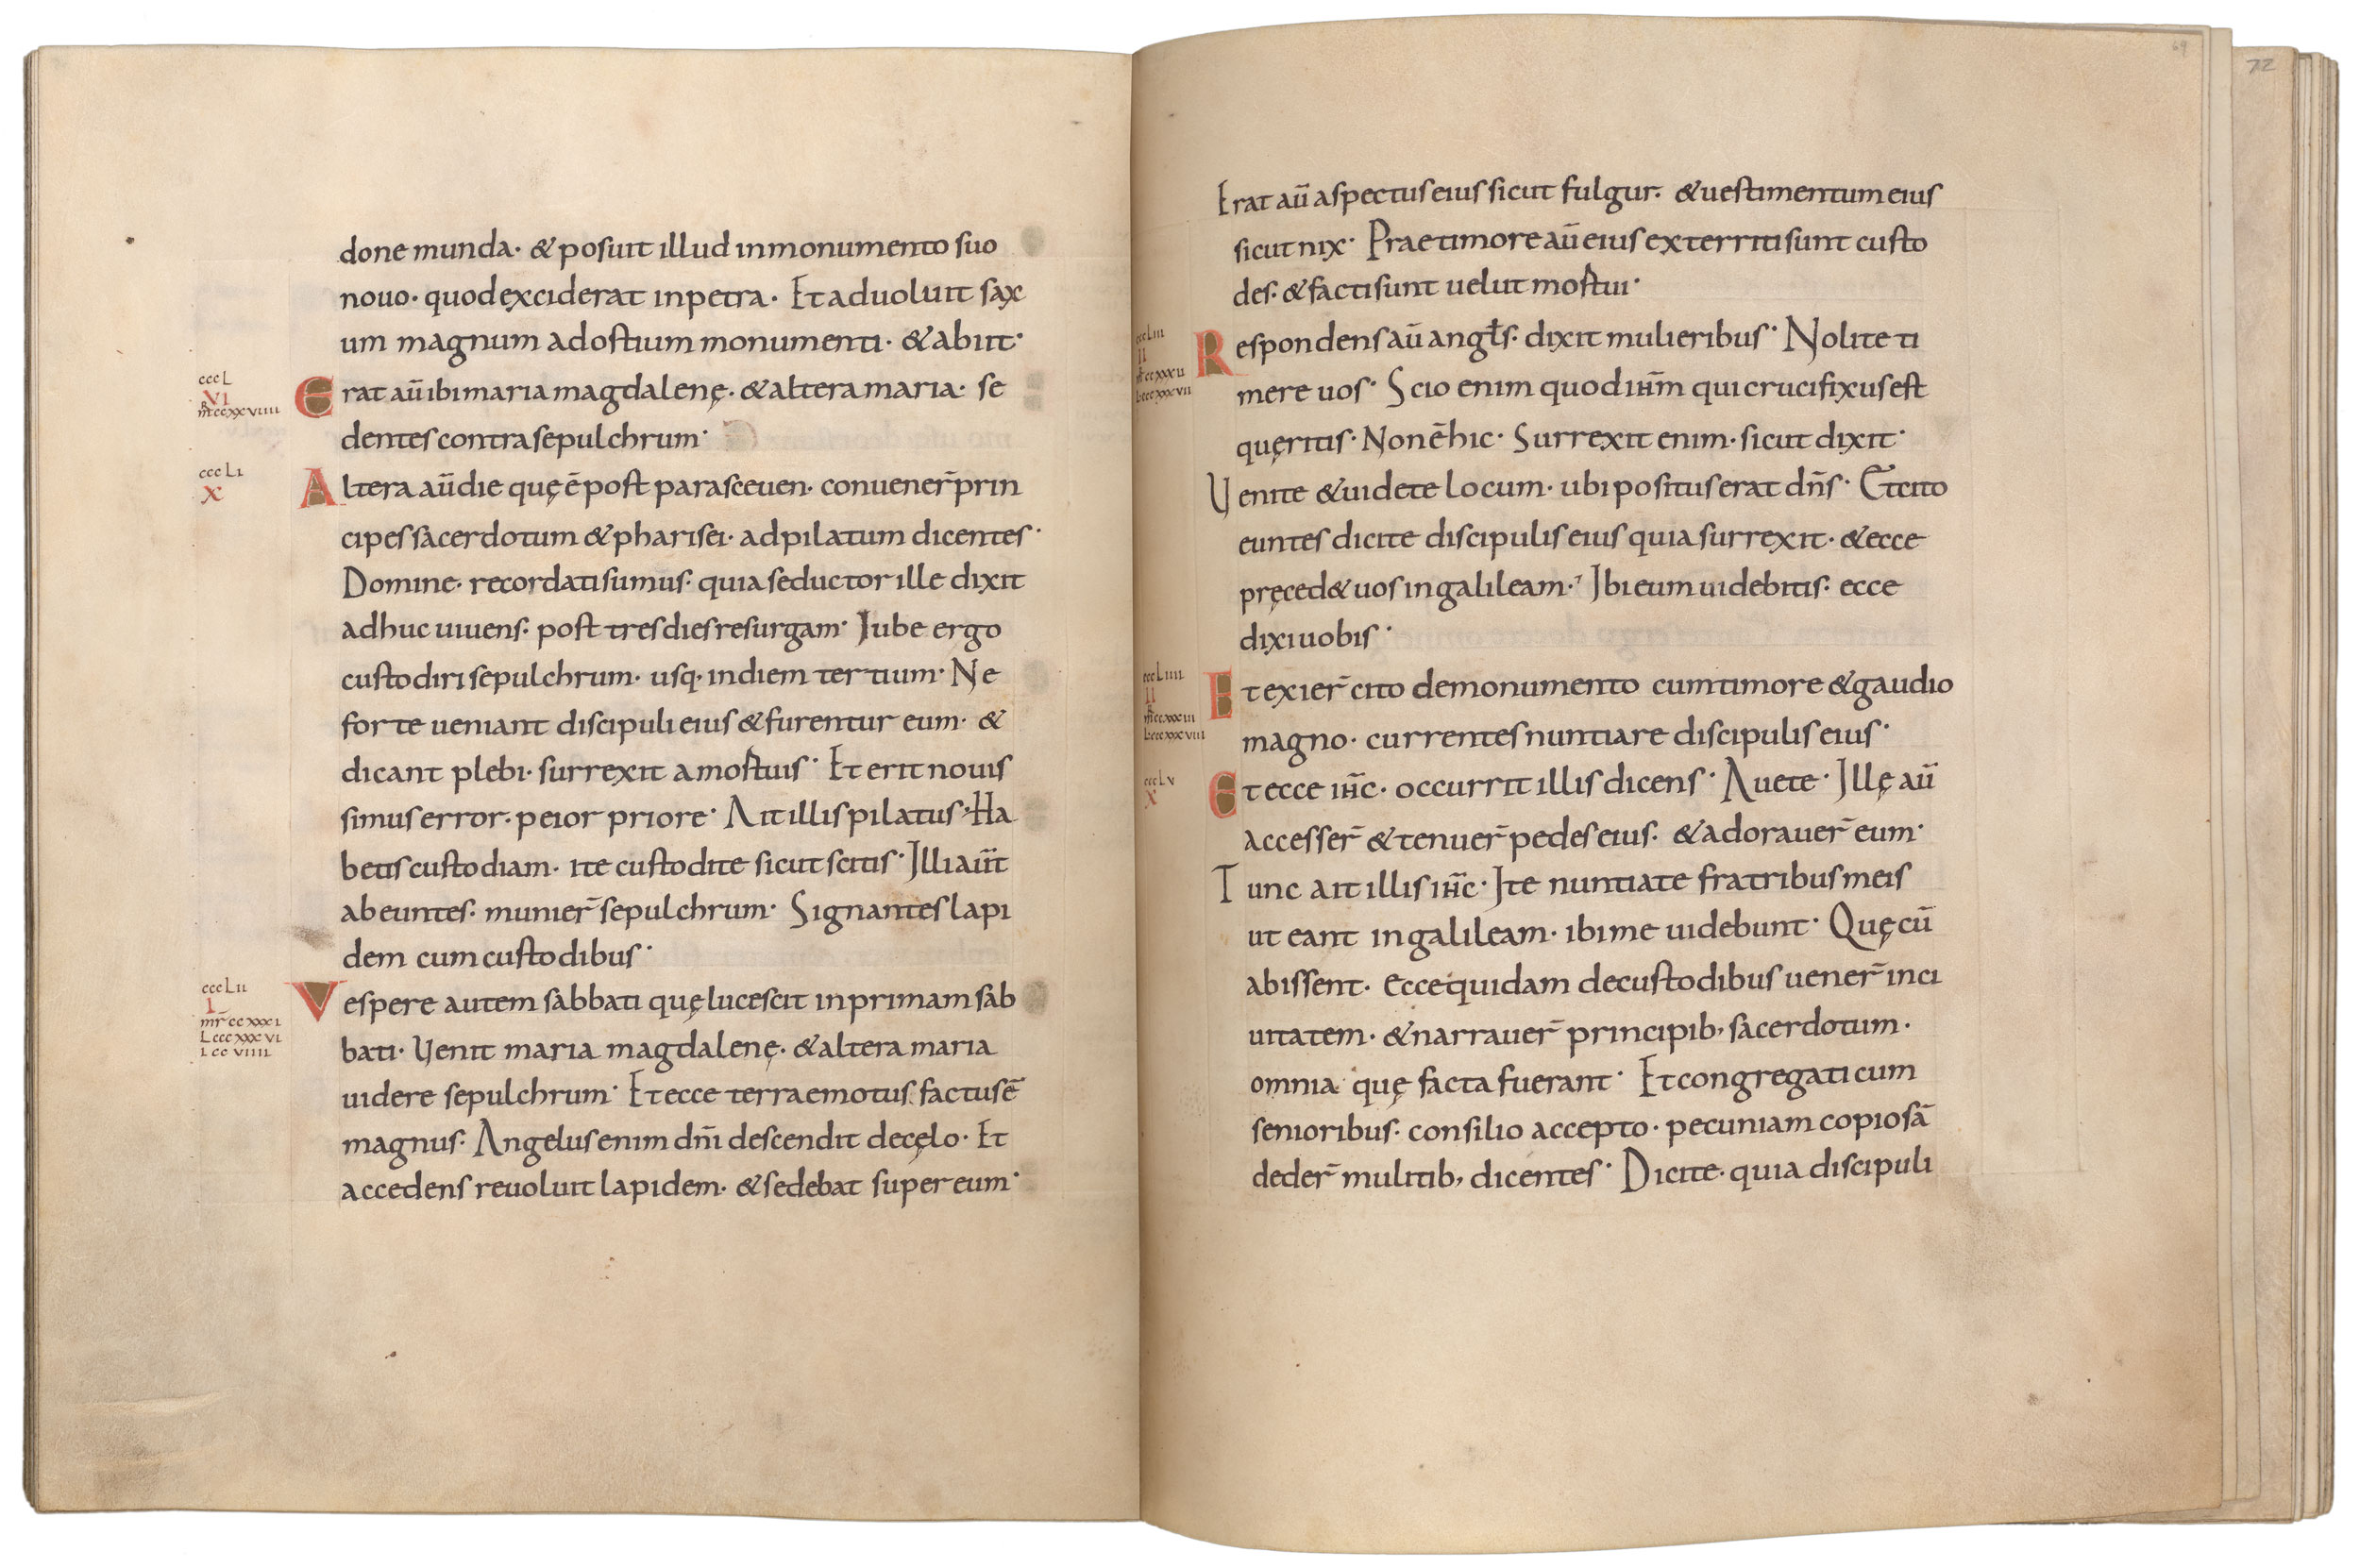 done munda· & posuit illud inmonumento suo
nouo· quodexciderat inpetra· Et aduoluit sax
um magnum adostium monumenti· & abiit·
cccL
VI
mr̄ ccxxviiii
Erat aū ibi maria magdalenę· & altera maria· se
dentes contra sepulchrum·
cccLi
X
Altera aū die quę ē post parasceuen· conuener̄ prin
cipes sacerdotum & pharisei· adpilatum dicentes·
Domine· recordati sumus· quia seductor ille dixit
adhuc uiuens· post tres dies resurgam· Iube ergo
custodiri sepulchrum· usq· indiem tertium· Ne
forte ueniant discipuli eius & furentur eum· &
dicant plebi· surrexit amostuis· Et erit nouis
simus error· peior priore· Ait illis pilatus· Ha
betis custodiam· ite custodite sicut scitis· Illi aūt
abeuntes· munier̄ sepulchrum· Signantes lapi
dem cum custodibus·
cccLii
I
mr̄ ccxxxi
L cccxxxvi
i ccviiii
Vespere autem sabbati quę lucescit inprimam sab
bati· Uenit maria magdalenę· & altera maria
uidere sepulchrum· Et ecce terraemotus factus ē
magnus· Angelus enim dn̄i descendit decęlo· Et
accedens reuoluit lapidem· & sedebat super eum·
69
72
Erat aū aspectus eius sicut fulgur· & uestimentum eius
sicut nix· Prae timore aū eius exterriti sunt custo
des· & facti sunt uelut mostui·
cccLiii
II
mr̄ ccxxxii
L cccxxxvii
Respondens aū angƚs· dixit mulieribus· Nolite ti
mere uos· Scio enim quod ihm̄ qui crucifixus est
quęritis· Non ē hic· Surrexit enim· sicut dixit·
Uenite & uidete locum· ubi positus erat dn̄s· Et cito
euntes dicite discipulis eius quia surrexit· & ecce
pręced& uos ingalileam· Ibi eum uidebitis· ecce
dixi uobis·
cccLiiii
II
mr̄ ccxxxiii
L cccxxxviii
Et exier̄ cito demonumento cum timore & gaudio
magno· currentes nuntiare discipulis eius·
cccLv
X
Et ecce ihc̄· occurrit illis dicens· Auete· Illę aū
accesser̄ & tenuer̄ pedes eius· & adorauer̄ eum·
Tunc ait illis ihc̄· Ite nuntiate fratribus meis
ut eant ingalileam· ibi me uidebunt· Quę cū
abissent· ecce quidam decustodibus uener̄ inci
uitatem· & narrauer̄ principib, sacerdotum·
omnia quę facta fuerant· Et congregati cum
senioribus· consilio accepto· pecuniam copiosā
deder̄ militib, dicentes· Dicite· quia discipuli